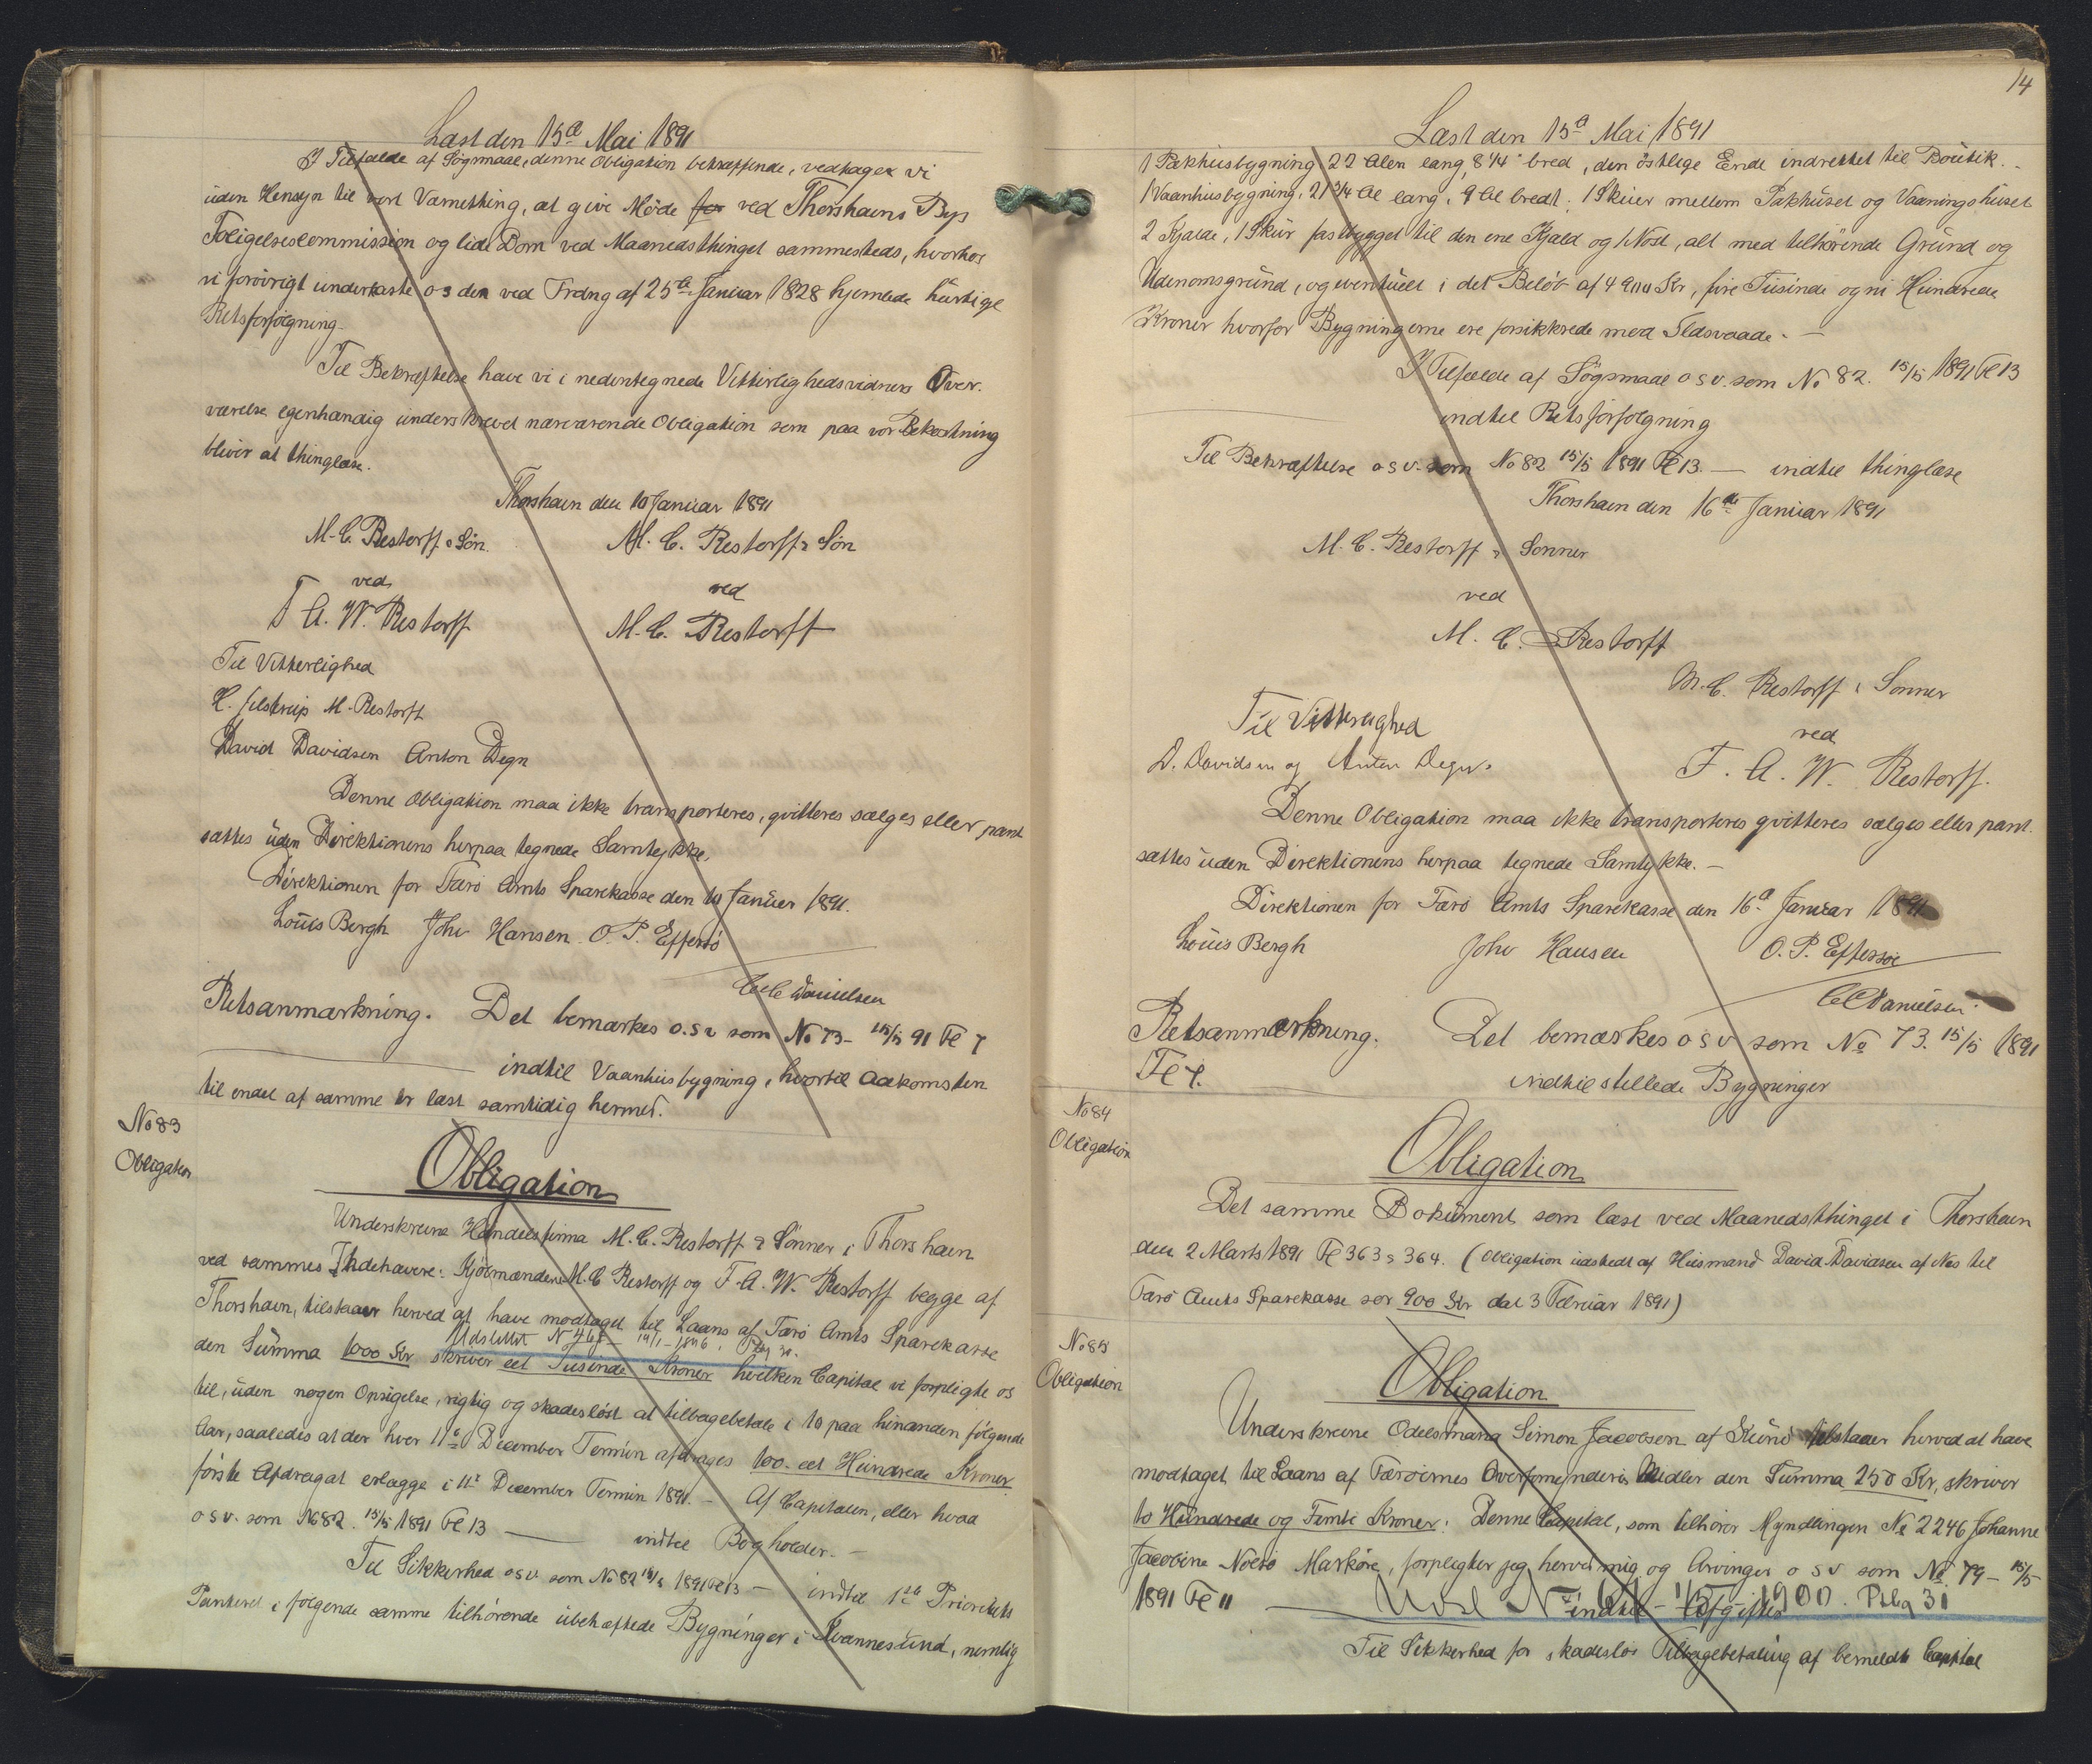 Læst den 15de Mai 1891
I Tilfælde af Søgsmaal, denne Obligation betræffende, vedtager vi
uden Hensyn til vort Varnething, at give Møde for ved Thorshavns Bys
Foligelsescommission og lide Dom ved Maanedsthinget sammesteds, hvorhos
vi forövrigt underkaste os den ved Frdng af 25de Januar 1828 hjemlede hurtige
Retsforfølgning.
Til Bekræftelse have vi i nedentegnede Vitterlighedsvidners Over-
værelse egenhændig underskrevet nærværende Obligation som paa vor Bekostning
bliver at thinglæse.
Thorshavn den 10 Januar 1891
M. C. Restorff & Søn. M. C. Restorff & Søn
ved ved
F A. W. Restorff M. C. Restorff
Til Vitterlighed
H. Jilstrup M. Restorff
David Davidsen Anton Degn
Denne Obligation maa ikke transporteres, qvitteres sælges eller pant
sættes uden Direktionens herpaa tegnede Samtykke.
Direktionen for Færö Amts Sparekasse den 10 Januar 1891.
Louis Bergh John Hansen O. P. Effersö
C C Danielsen
Retsanmærkning. Det bemærkes o.s.v som No 73- 15/5 91 Fol 7
indtil Vaanhusbygning, hvortil Adkomsten
til endel af samme er læst samtidig hermed.
No 83
Obligation
Obligation
Underskrevne Handelsfirma M. C. Restorff & Sönner i Thorshavn
ved sammes Indehavere: Kjöbmændene M. C Restorff og F. A. W. Restorff begge af
Thorshavn, tilstaaer herved at have modtaget til Laans af Færö Amts Sparekasse
Udslettet N 468 - 14/1 - 1896. Pbg 30.
den Summa 1000 Kr skriver eet Tusinde Kroner hvilken Capital vi forpligte os
til, uden nogen Opsigelse, rigtig og skadesløst at tilbagebetale i 10 paa hinanden følgende
Aar, saaledes at der hver 11te December Termin afdrages 100. eet Hundrede Kroner
förste Afdrag at erlægge i 11te December Termin 1891. - Af Capitalen, eller hvad
o s v. som No 82. 15/5 1891 Fol 13 — indtil Bogholder. -
Til Sikkerhed osv som No 82 15/5 1891 Fol 13 — indtil 1ste Prioritets
Panteret i følgende samme tilhörende ubehæftede Bygninger i Kvannesund, nemlig
14
Læst den 15de Mai 1891
1 Pakhusbygning 22 Alen lang, 8 1/4 " bred, den östlige Ende indrettet til Boutik. -
1 Vaanhusbygning, 21 3/4 Al lang, 9 Al bredt; 1 Skuer mellem Pakhuset og Vaaningshuset
2 Hjalde, 1 Skur fastbygget til den ene Hjald og 1 Nost, alt med tilhörende Grund og
Udenomsgrund, og eventuelt i det Belöb af 4900 Kr, fire Tusinde og ni Hundrede
Kroner hvorfor Bygningerne ere forsikkrede mod Ildsvaade. —
I Tilfælde af Sögsmaal osv. som No 82. 15/5 1891 Fol 13
indtil Retsforfølgning
Til Bekræftelse osv. som No 82 15/5 1891 Fol 13. — indtil thinglæse
Thorshavn den 16de Januar 1891
M. C. Restorff & Sonner
ved
M. C. Restorff
M. C. Restorff & Sonner
Til Vitterlighed
ved
D. Davidsen og Anton Degn.
F. A. W. Restorff.
Denne Obligation maa ikke transporteres qvitteres sælges eller pant.
sættes uden Direktionens herpaa tegnede Samtykke. -
Direktionen for Færö Amts Sparekasse den 16de Januar 1891
Louis Bergh John Hansen O. P. Effersöe
C C Danielsen.
Retsanmærkning. Det bemærkes osv som No 73. 15/5 1891
Fol 7. indtil stillede Bygninger
No 84
Obligation
Obligation
Det samme Dokument som læst ved Maanedsthinget i Thorshavn
den 2 Marts 1891 Fol 363 & 364. (Obligation udstedt af Huusmand David Davidsen af Næs til
Færö Amts Sparekasse for 900 Kr dat 3 Februar 1891)
No 85
Obligation
Obligation
Underskrevne Odelsmand Simon Jacobsen af Kunö tilstaaer herved at have
modtaget til Laans af Færöernes Overformynderis Midler den Summa 250 Kr, skriver
to Hundrede og Femti Kroner: Denne Capital, som tilhører Myndlingen No 2246 Johanne
Jacobine Nolsö Markøre, forpligter jeg herved mig og Arvinger o s v som No 79- 15/5
1891 Fol 11 — indtil Afgifter
Udsl N 1900. Pbg 31
Til Sikkerhed for skadeslös Tilbagebetaling af bemeldte Capital